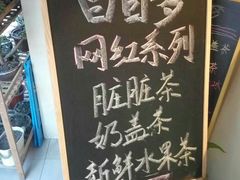 网红系列
脏脏茶
奶盖茶
新鲜水果茶